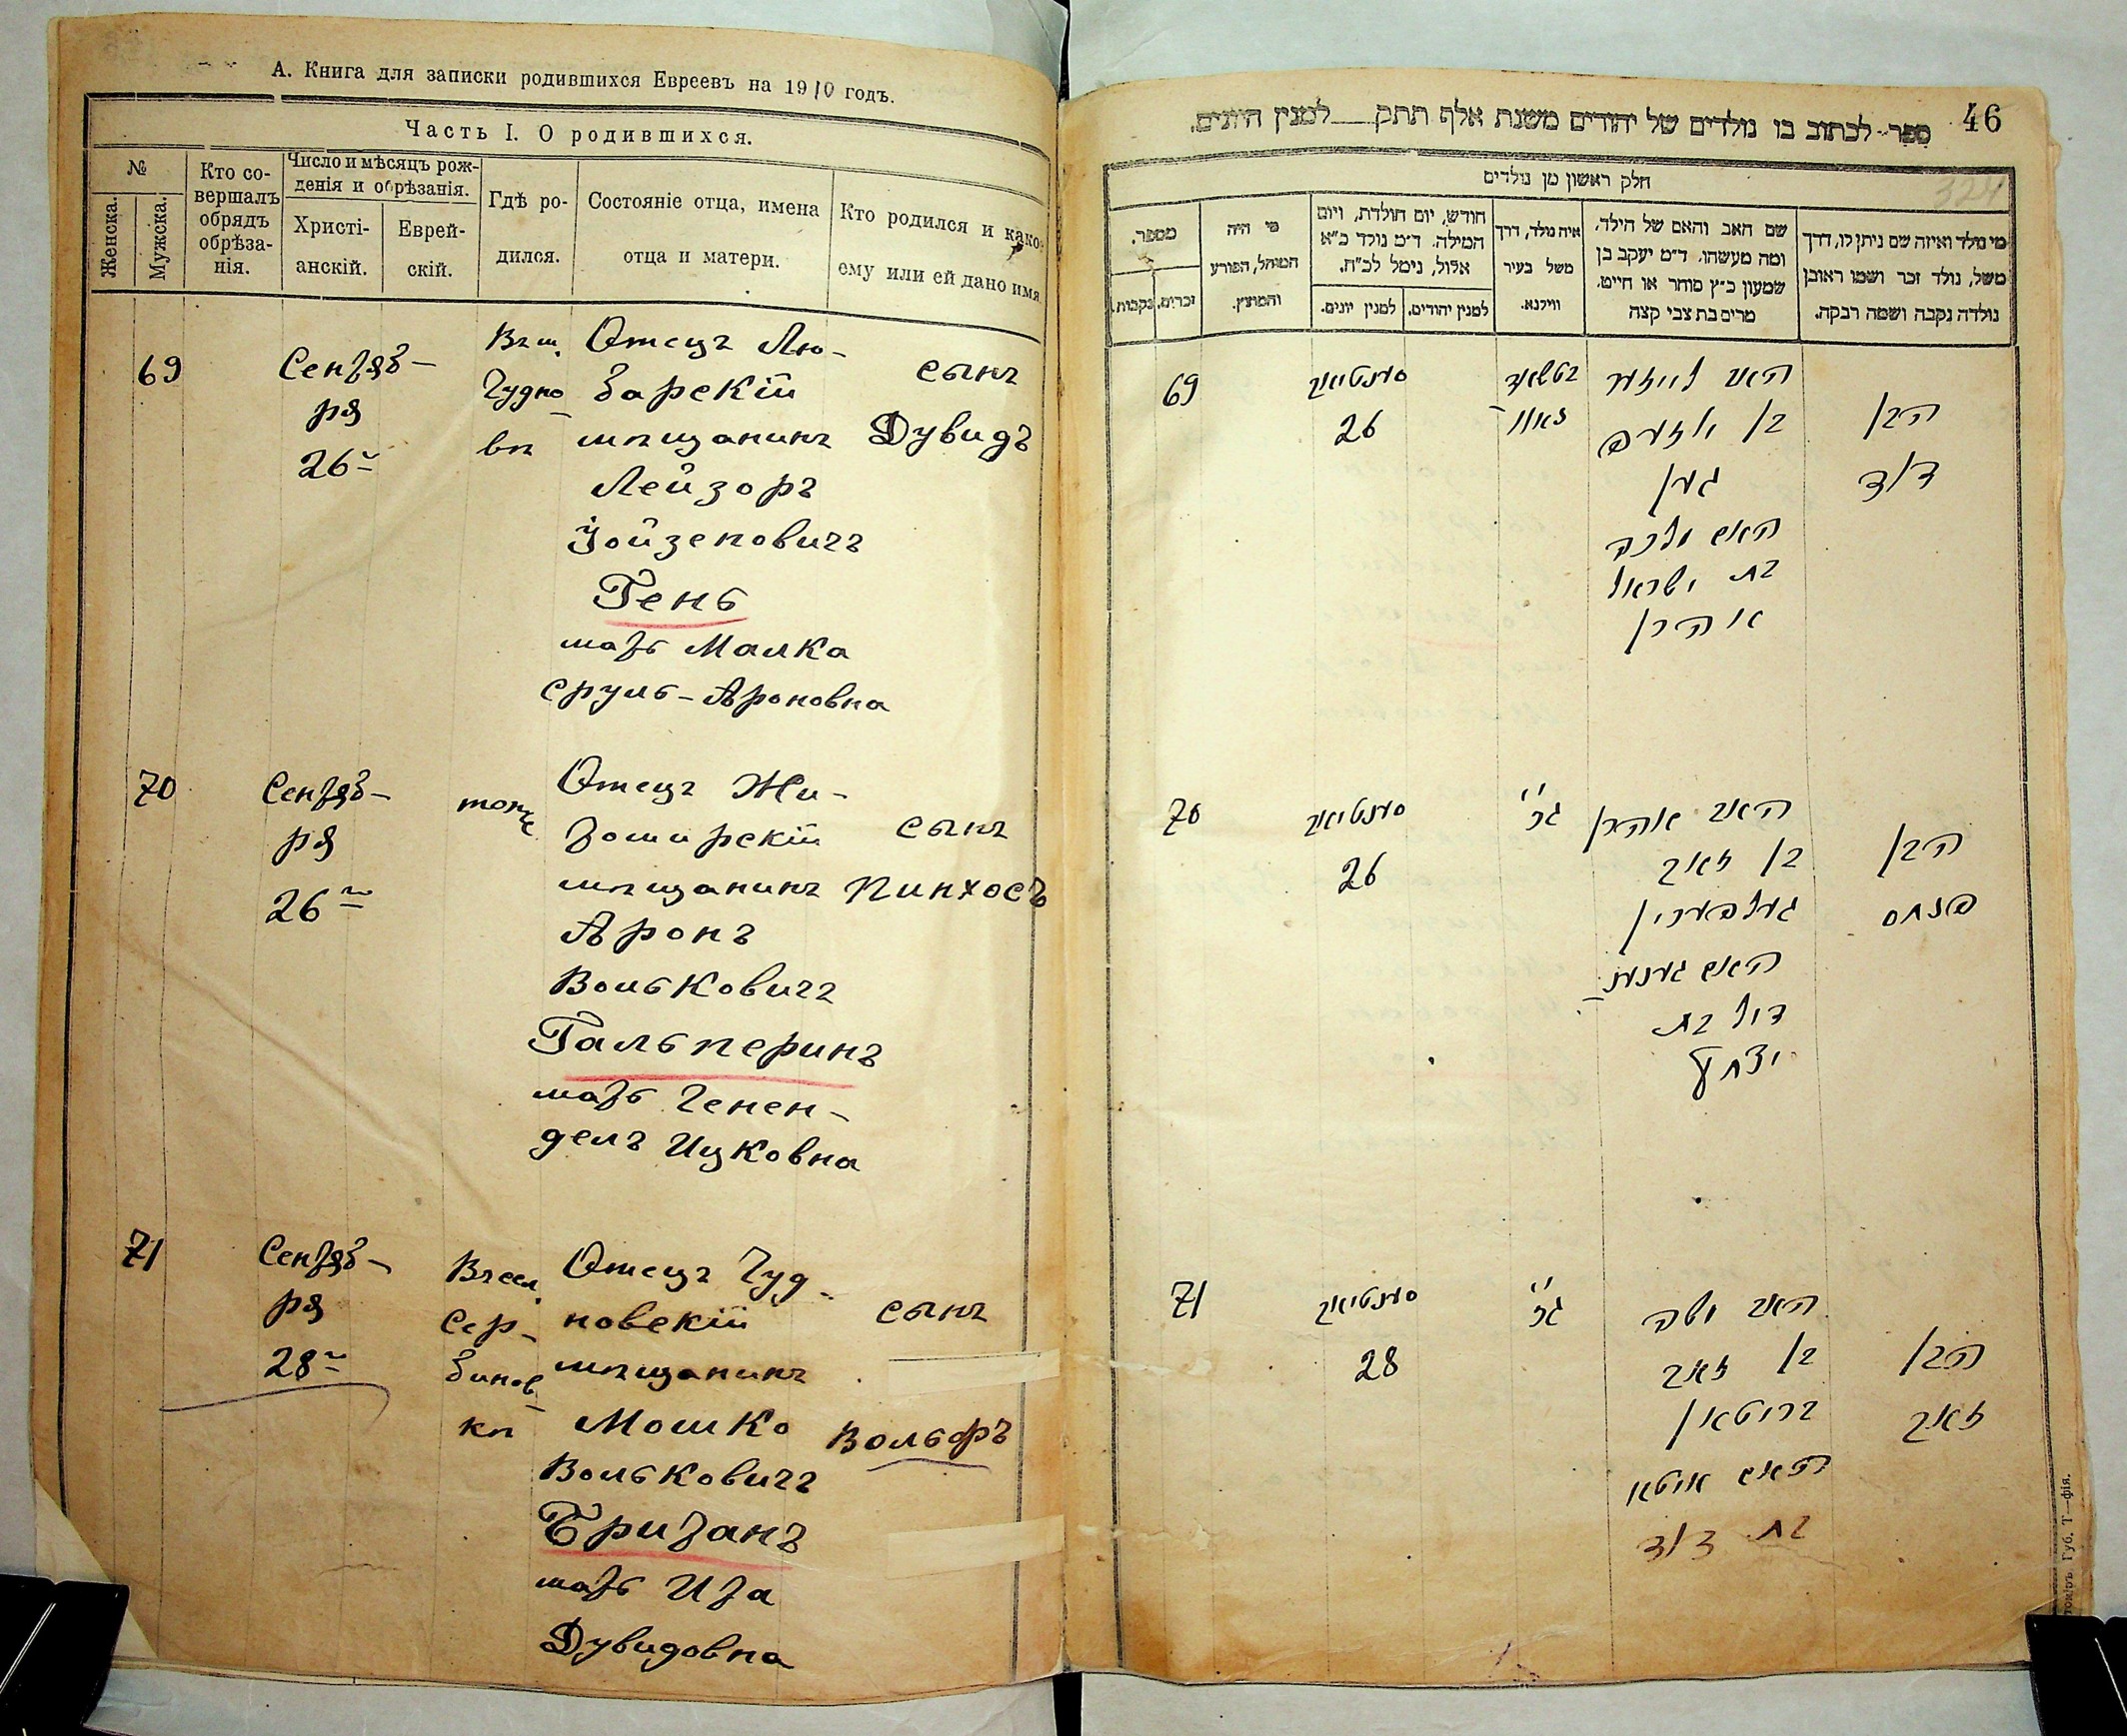 А. Книга для записки родившихся Евреевъ на 1910 годъ.
Часть I. О родившихся.
№
Женска.
Мужска.
Кто со-
вершалъ
обрядъ
обрѣза-
нія.
Число и мѣсяцъ рож-
денія и обрѣзанія.
Христі-
анскій.
Еврей-
скій.
Гдѣ ро-
дился.
Состояніе отца, имена
отца и матери.
Кто родился и како-
ему или ей дано имя
69
Сентяб-
ря
26
Въ м.
Чудно
вѣ
Отецъ Лю-
барскій
мѣщанинъ
Лейзоръ
Іойзеповичъ
Генъ
мать Малка
Сруль-Ароновна
сынъ
Дувидъ
70
Сентяб-
ря
26
тоже
Отецъ Жи-
томирскій
мѣщанинъ
Аронъ
Вольковичъ
Гальперинъ
мать Генен-
делъ Ицковна
сынъ
Пинхосъ
71
Сентяб-
ря
28
Въ сел.
Сер-
бинов-
кѣ
Отецъ Чуд-
новскій
мѣщанинъ
Мошко
Вольковичъ
Британъ
мать Ита
Дувидовна
сынъ
Вольфъ
46
ספר לכתוב בו נולדים של יהודים משנת אלף תתק___למנין היונים.
324
חלק ראשון מן נולדים
מספר.
זכרים.
נקבות.
מי היה
המוהל, הפורע
והמוצץ.
חודש, יום הולדת, ויום
המילה. ד״מ נולד כ״א
אלול, נימל לכ״ח.
למנין יונים.
למנין יהודים.
איה נולד, דרך
משל בעיר
ווילנא.
שם האב והאם של הילד,
ומה מעשהו. ד״מ יעקב בן
שמעון כ״ץ סוחר או חייט,
מרים בת צבי קצה
מי נולד ואיזה שם ניתן לו, דרך
משל, נולד זכר ושמו ראובן
נולדה נקבה ושמה רבקה.
69
סענטיאב
26
האב לייזער
בן יאזעפ
גען
האם מלכה
בת ישראל
אהרן
הבן
דוד
70
סענטיאב
26
האב אהרן
בן זאב
גאלפערין
האם גענענ-
דיל בת
יצחק
הבן
פנחס
71
סענטיאב
28
האב משה
בן זאב
בריטאן
האם איטא
בת דוד
הבן
זאב
Губ. Т—фія.